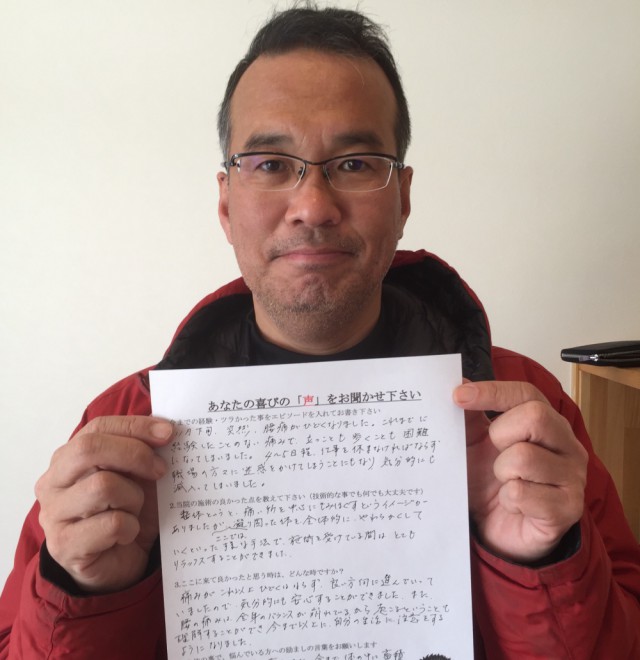 あなたの喜びの「声」をお聞かせ下さい
までの経験・ツラかった事をエピソードを入れてお書き下さい
下旬 突然、腰痛がひどくなりました。これまでに
経験したことのない痛みで、立つことも歩くことも困難
になってしまいました。4〜5日程、仕事を休まなければならず
職場の方々に迷惑をかけてしまうことにもなり 気分的にも
滅入ってしまいました。
2.当院の施術の良かった点を教えて下さい（技術的な事でも何でも大丈夫です）
整体というと、痛い所を中心にもみほぐすというイメージが
ありましたが、凝り固った体を全体的に、やわらかくして
ここでは、
いくといった様な手法で、施術を受けている間は、とても
リラックスすることができました。
3.ここに来て良かったと思う時は、どんな時ですか？
痛みがこれ以上ひどくはならず、良い方向に進んでいって
いましたので 気分的にも安心することができました。また、
腰の痛みは、全身のバランスが崩れているから起こるということも
理解することができ、今まで以上に、自分の生活に注意する
ようになりました。
悩んでいる方への励ましの言葉をお願いします